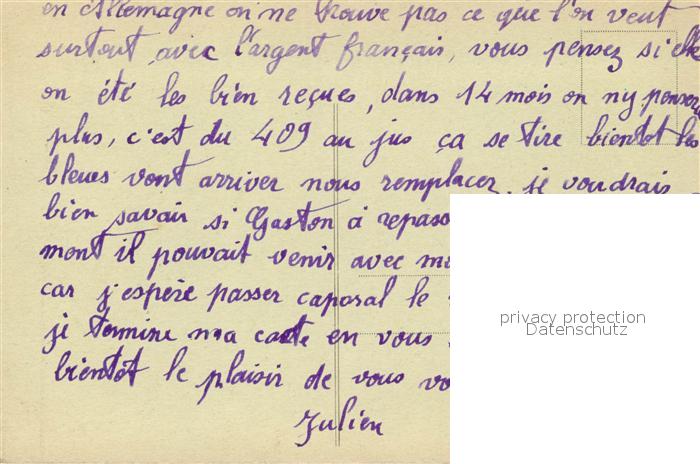 en Allemagne on ne trouve pas ce que l'on veut
surtout avec l'argent français, vous pensez si elle
on été les bien reçues, dans 14 mois on ny pensera
plus, c'est du 409 au jus ça se tire bientot les
bleues vont arriver nous remplacer. je voudrais
bien savair si Gaston à repass
mont il pouvait venir avec m
car j'espère passer caporal le
je termine ma carte en vous
bientôt le plaisir de vous vo
Julien
privacy protection
Datenschutz